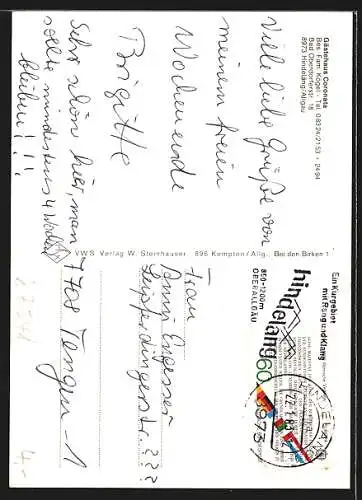 Gästehaus Coronata
Bes. Fam. Kögel - Tel. 08324/2153 + 2494
Bad Oberdorferstr. 18
8973 Hindelang/Allgäu
Viele liebe Grüße von
meinem freien
Wochenende
Brigitte
Sehr schön hier, man
sollte mindestens 4 Wochen
bleiben!!!
VWS Verlag W. Sternhauser, 896 Kempten/Allg., Bei den Birken 1
Ein Kurgebiet
mit Rang und Klang
hindelang
850-1200m
OBERALLGÄU
60
8973
Frau
???
7708 Tengen-1
4,-